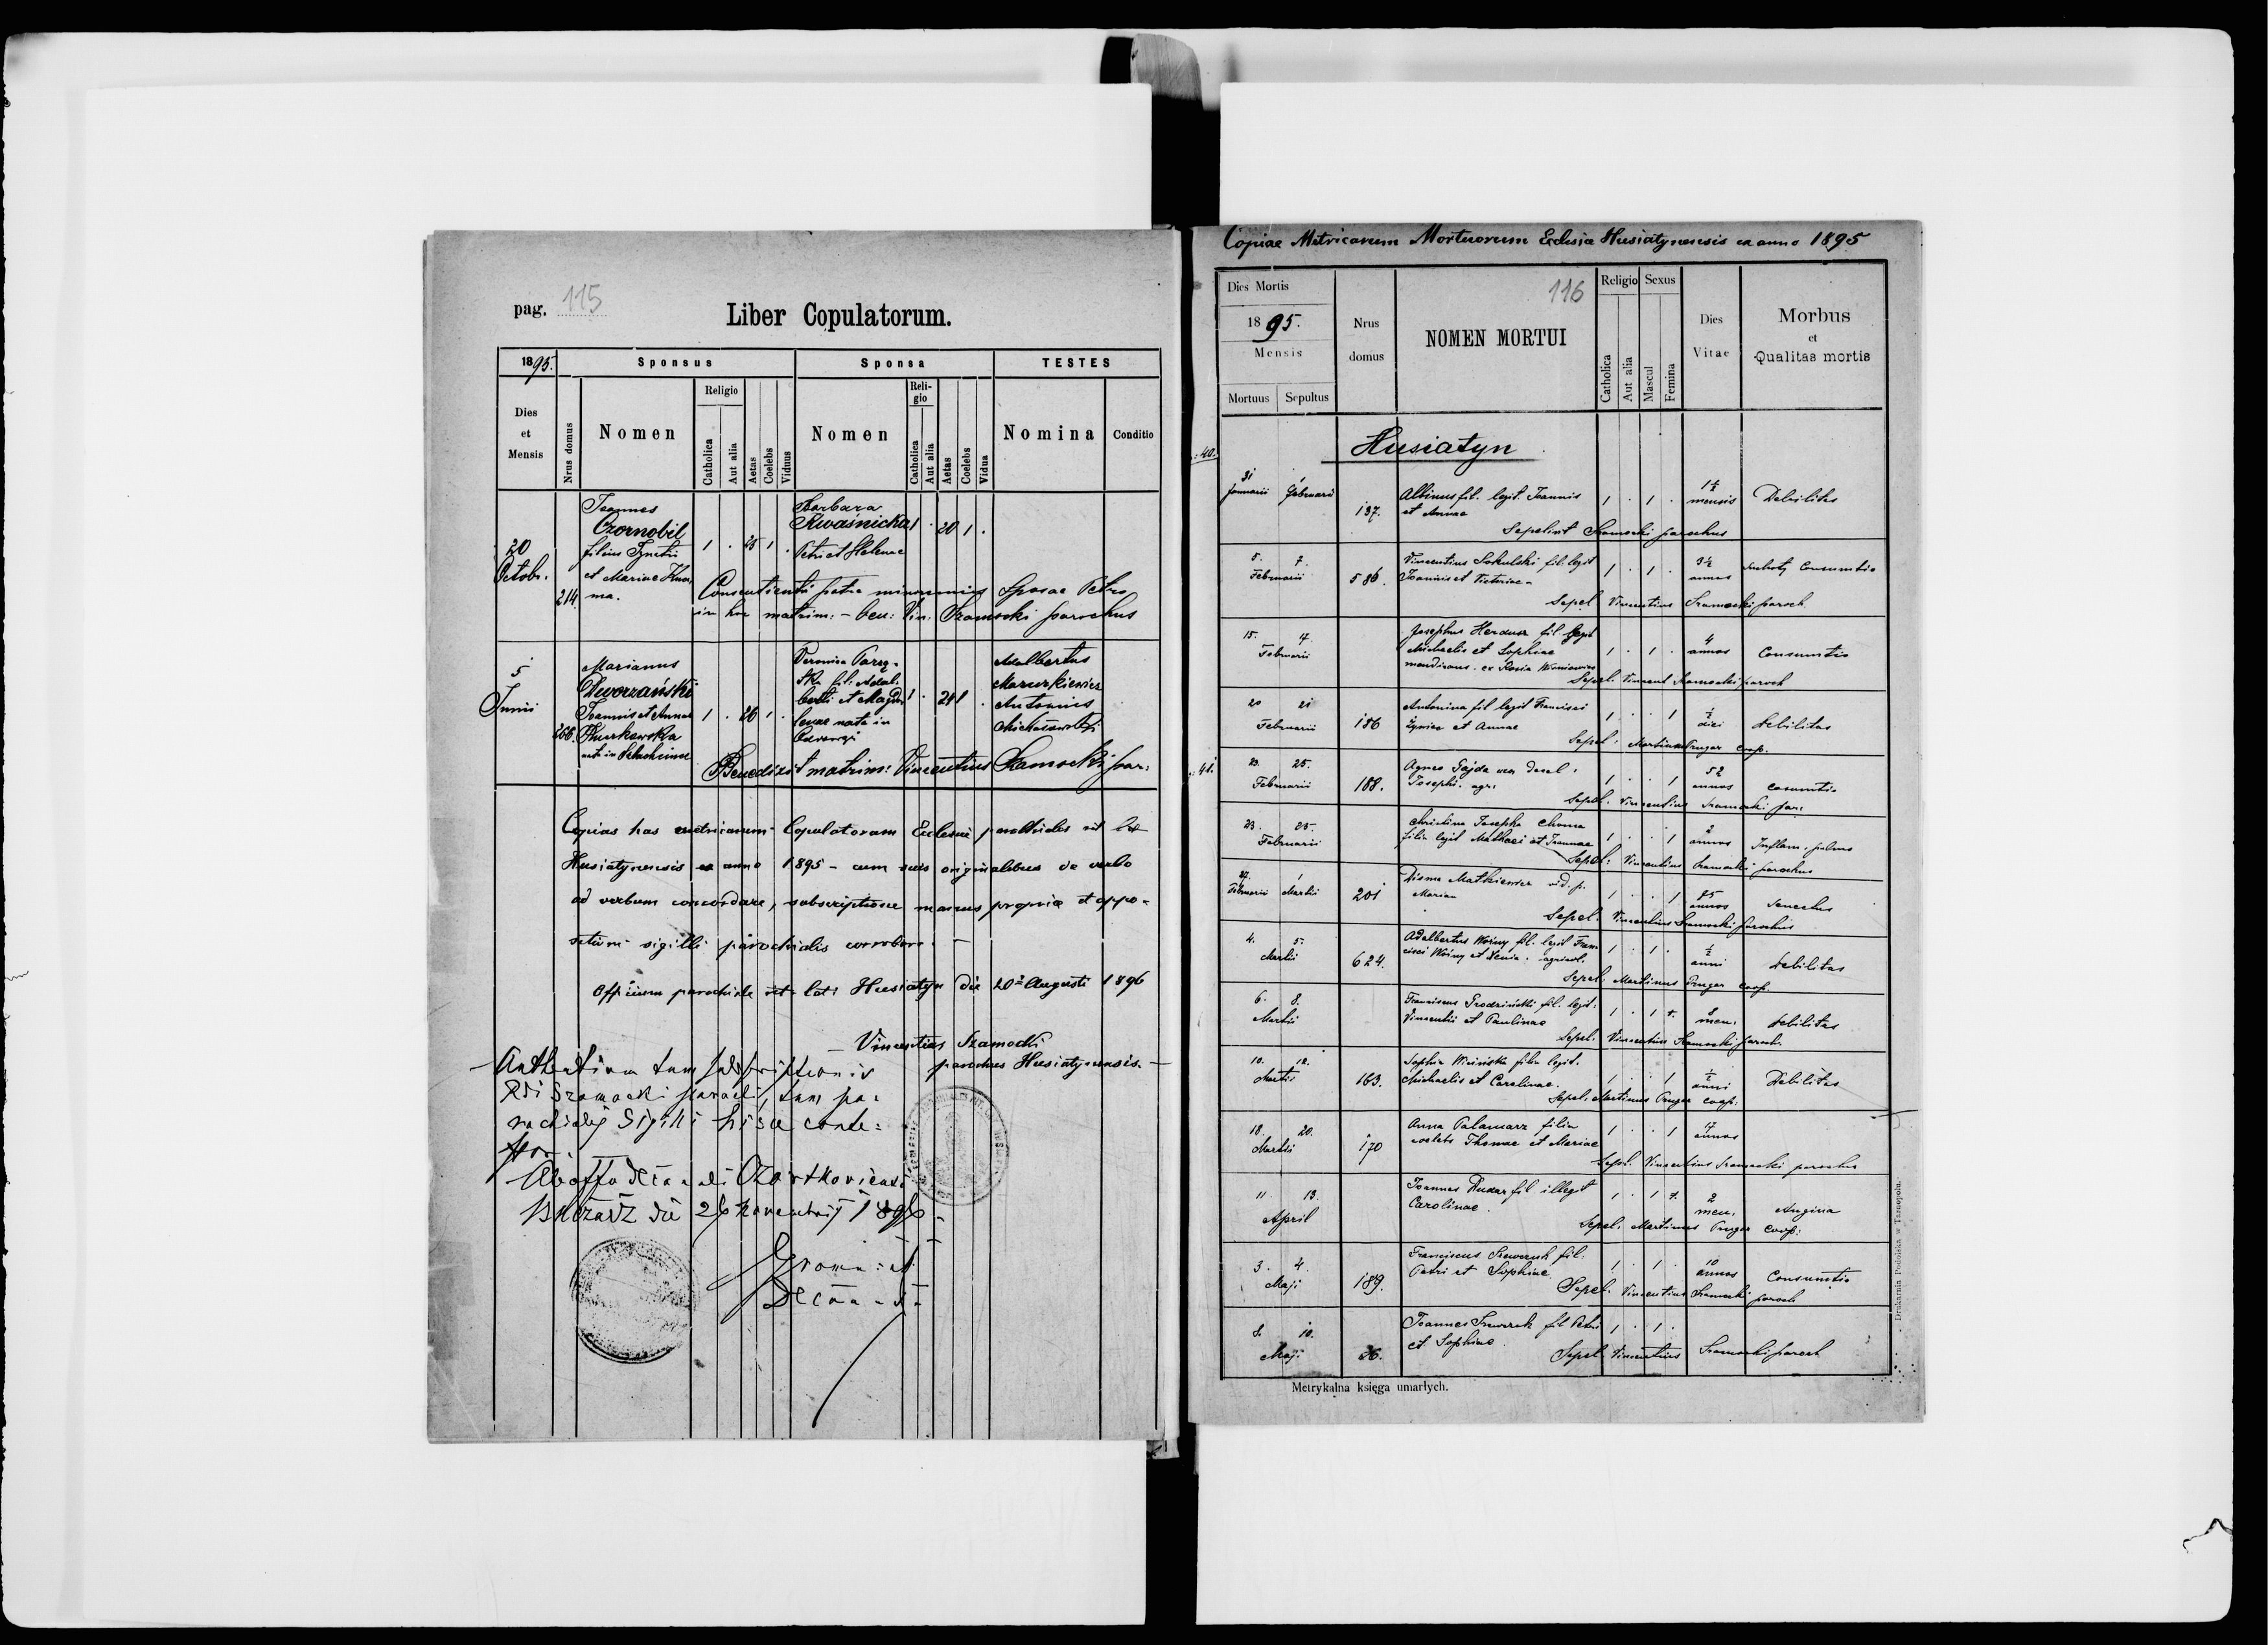 pag. 115
Liber Copulatorum.
1895.
Sponsus
Sponsa
TESTES
Dies
et
Mensis
Nrus domus
Nomen
Religio
Catholica
Aut alia
Aetas
Coelebs
Viduus
Nomen
Reli-
gio
Catholica
Aut alia
Aetas
Coelebs
Vidua
Nomina
Conditio
20
Octobr.
214
Joannes
Czornobil
filius
et Mariae
ma.
1 . 25 1 .
Barbara
Kwaśnicka
Petri et Helenae
1 . 20 1 .
Consentiente patre minorennis Sposae Petro
in hoc matrim: - ben: Vin: Szamocki parochus
5
Junii
266.
Marianus
Dworzański
Joannis et Annae
1 . 26 1 .
Veronica
fil: Adal-
berti et Magda
lenae nata in
1 . 24 1 .
Adalbertus
Mazurkiewicz
Antonius
Benedixit matrim: Vincentius Szamocki par:
Copias has metricarum Copulatorum Ecclesiae parochialis rit lat
Husiatynensis ex anno 1895 - cum suis originalibus de verbo
ad verbum concordare, subscriptione manus propria et appo-
sitione sigilli parochialis corroboro. -
Officium parochiale rit. lat: Husiatyn die 20 Augusti 1896
Vincentius Szamocki
parochus Husiatynensis. -
tam subscriptionis
Rdi Szamocki parochi, tam pa-
rochialis Sigilli hisce conte-
stor.
die 26 Novembris 1896 -
Copiae Metricarum Mortuorum Eclesia Husiatynensis ex anno 1895
116
Dies Mortis
1895.
Mensis
Mortuus
Sepultus
Nrus
domus
NOMEN MORTUI
Religio
Catholica
Aut alia
Sexus
Mascul
Femina
Dies
Vitae
Morbus
et
Qualitas mortis
: 40.
Husiatyn
31 1
Januarii Februarii
137.
Albinus fil. legit. Joannis
et Annae
1 . 1 .
1½
mensis
Debilitas
Sepelivit Szamocki parochus
5. 7.
Februarii
586.
Vincentius Sokulski fil. legit
Joannis et Victoriae
1 . 1 .
3½
annos
Suchoty Consumtio
Sepel Vincentius Szamocki paroch.
15. 4.
Februarii
Josephus Herdusz fil legit
Michaelis et Sophiae
1 . 1 .
4
annos
Consumtio
Sepel. Vincent Szamocki paroch
20 21
Februarii
186
Antonina fil legit Francisci
et Annae
1 . . 1
½
diei
debilitas
Sepel: Martinus Prugar coop.
: 41.
23. 25.
Februarii
188.
Agnes Gajda
Josephi. agr.
1 . . 1
52
annos
consumtio
Sepel. Vincentius Szamocki par:
23. 25.
Februarii
Christina Josepha Choma
filia legit Mathaei et Joannae
1 . . 1
2
annos
Inflam. pulmo
Sepel: Vincentius Szamocki parochus
27. 1
Februarii Martii
201
Matkiewicz vid. p.
Marian
1 . . 1
75
annos
Senectus
Sepel. Vincentius Szamocki parochus
4. 5.
Martii
624.
Adalbertus Woźny fil. legit Fran-
cisci Woźny et Xenia. agricol.
1 . 1 .
½
anni
debilitas
Sepel. Martinus Prugar coop.
6. 8.
Martii
Franciscus Grodziński fil. legit.
Vincentii et Paulinae
1 . 1 .
men.
debilitas
Sepel. Vincentius Szamocki paroch.
10. 12.
Martii
163.
Sophia filia legit.
Michaelis et Carolinae.
1 . . 1
½
anni
Debilitas
Sepel. Martinus Prugar coop:
18. 20.
Martii
170
Anna Palamarz filia
coelebs Thomae et Mariae
1 . . 1
17
annos
Sepel. Vincentius Szamocki parochus
11. 13.
April
Joannes fil illegit
Carolinae.
1 . 1 .
2
men.
Angina
Sepel. Martinus Prugar coop:
3. 4.
Maji
189.
Franciscus Szewczuk fil.
Petri et Sophiae
1 . 1 .
10
annos
Consumtio
Sepel. Vincentius Szamocki paroch
8. 10.
Maji
36.
Joannes Szewczuk fil Petri
et Sophiae
1 . 1 .
Sepel. Vincentius Szamocki paroch
Metrykalna księga umarłych.
Drukarnia Podolska w Tarnopolu.